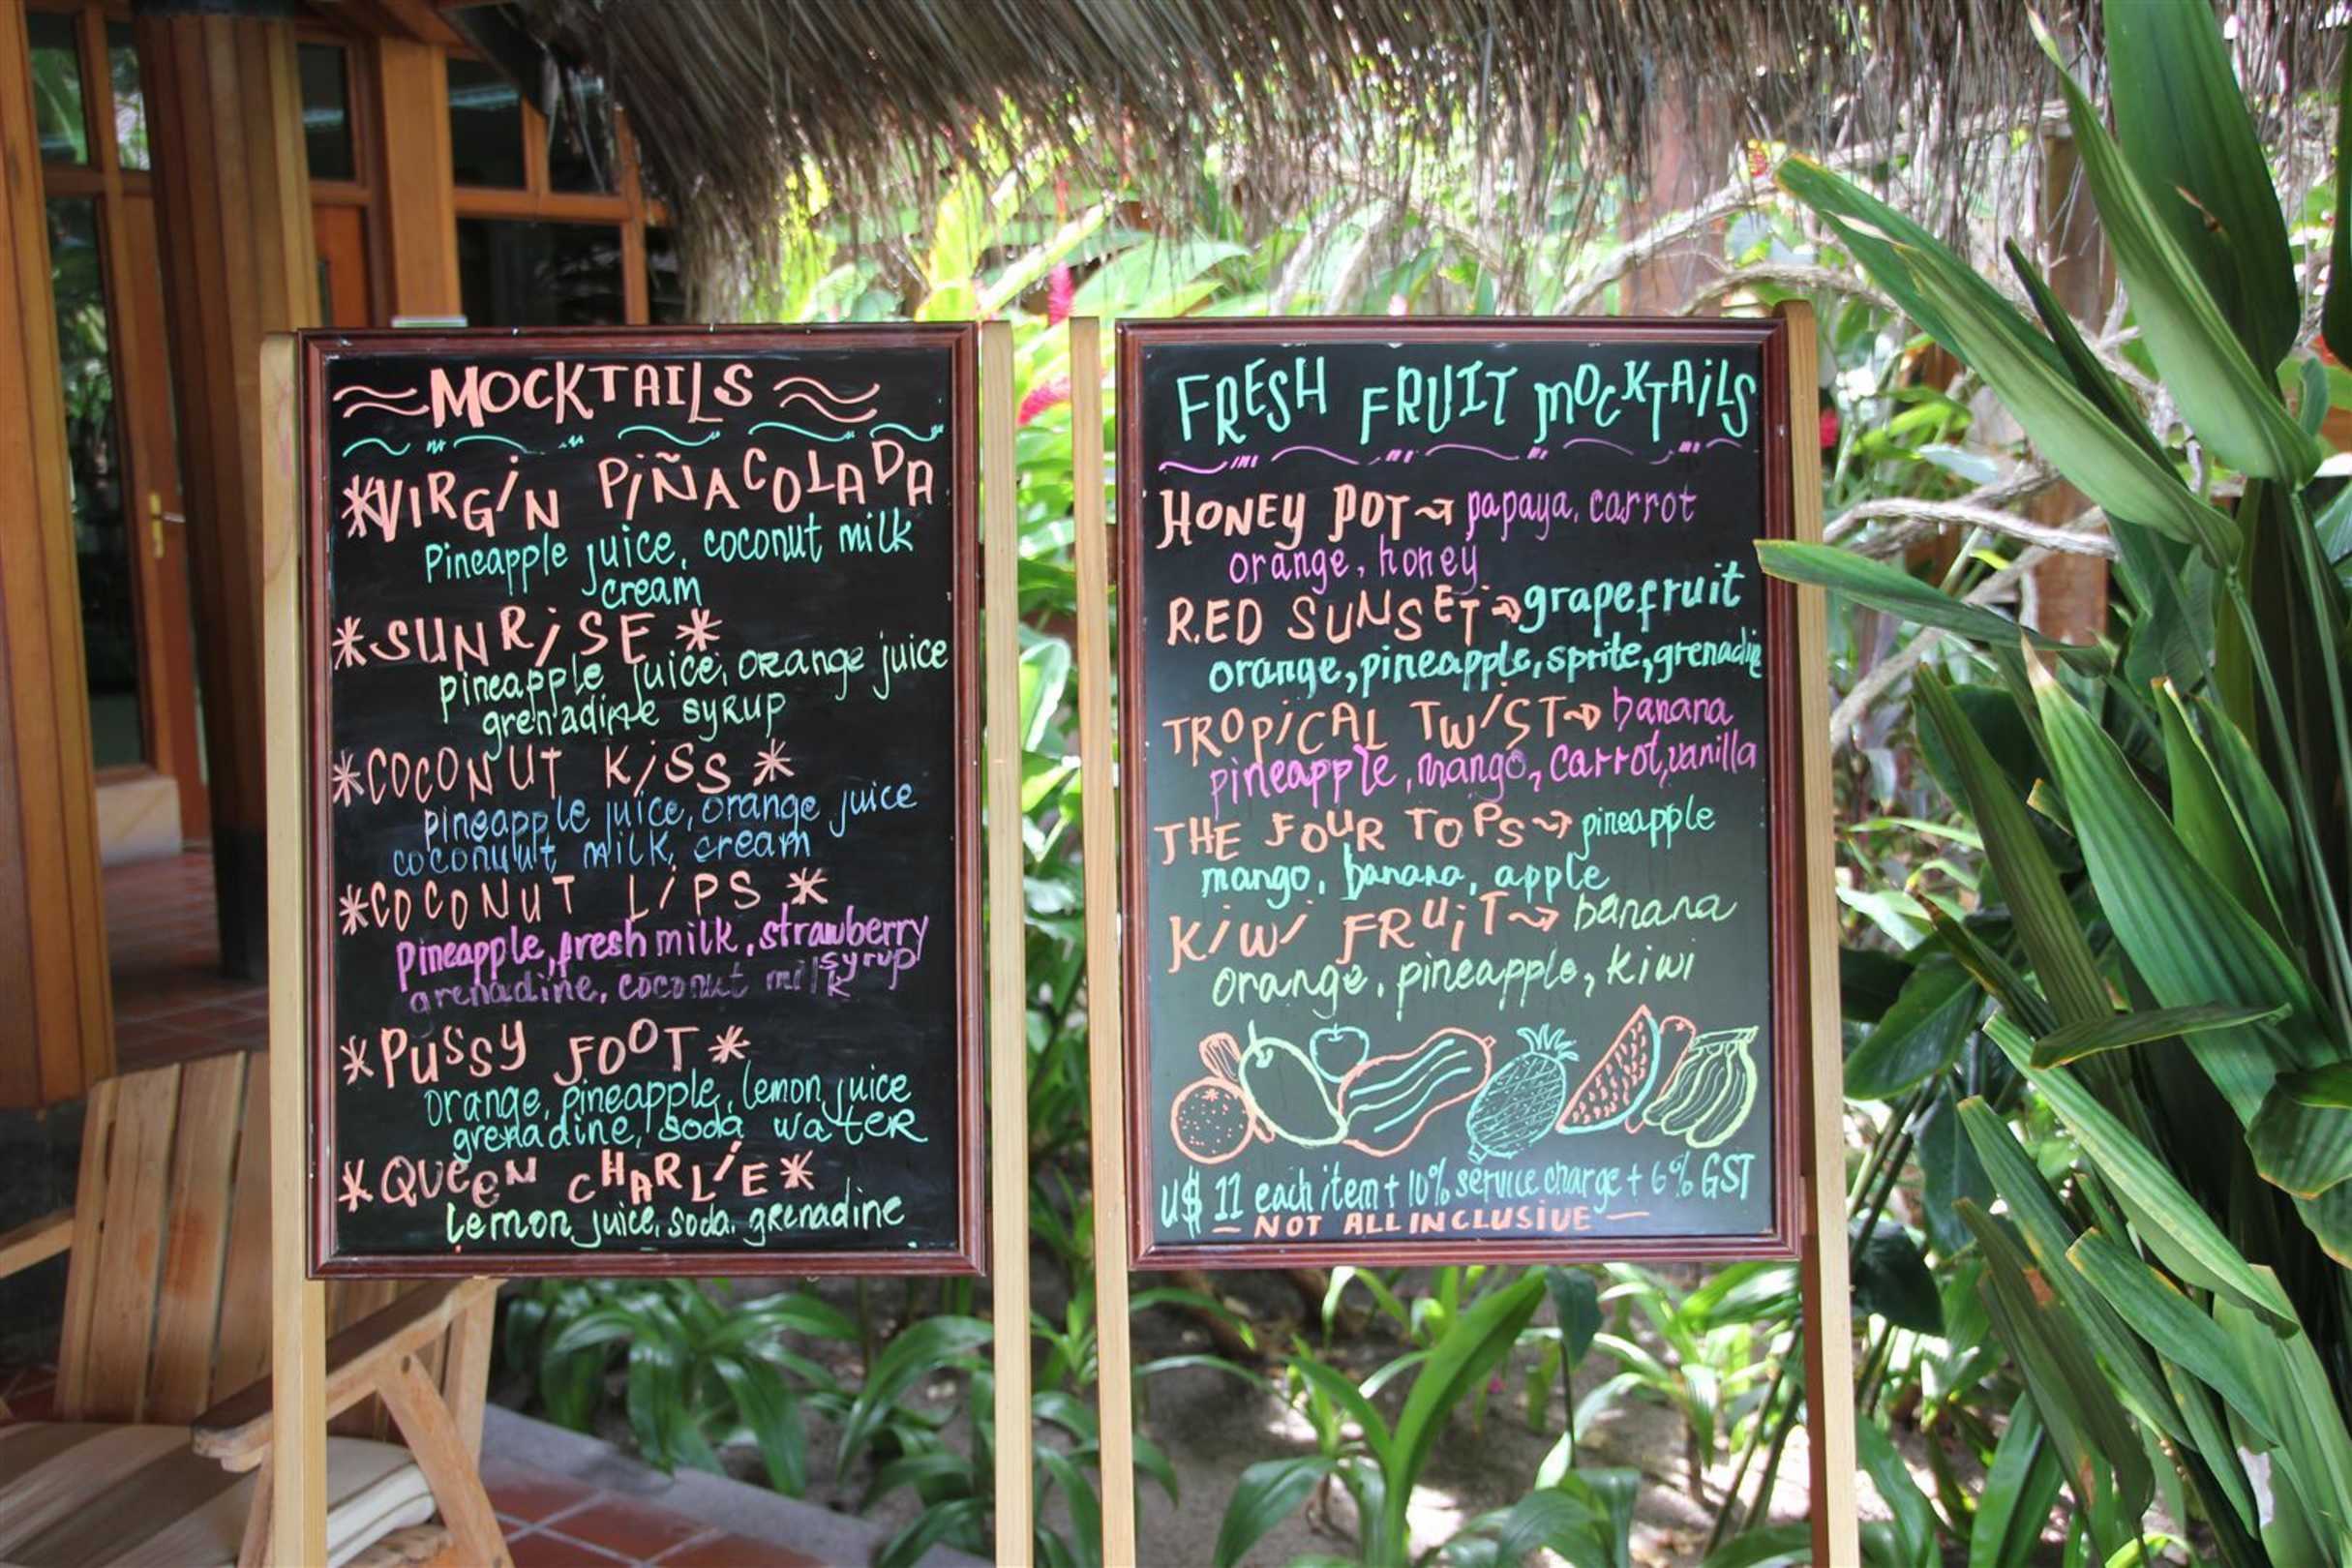 MOCKTAILS
*VIRGIN PIÑACOLADA
Pineapple juice, coconut milk
cream
*SUNRISE*
pineapple juice, orange juice
grenadine syrup
*COCONUT KISS*
pineapple juice, orange juice
coconut, milk, cream
*COCONUT LIPS*
pineapple, fresh milk, strawberry
syrup
grenadine, coconut milk
*PUSSY FOOT*
orange, pineapple, lemon juice
grenadine, soda water
*QUEEN CHARLIE*
Lemon juice, soda, grenadine
FRESH FRUIT MOCKTAILS
HONEY POT→ papaya, carrot
orange, honey
RED SUNSET→grapefruit
orange, pineapple, sprite, grenadine
TROPICAL TWIST→ banana
pineapple, mango, carrot, vanilla
THE FOUR TOPS→ pineapple
mango, banana, apple
KIWI FRUIT→ banana
orange, pineapple, kiwi
U$ 11 each item + 10% service charge + 6% GST
— NOT ALL INCLUSIVE —